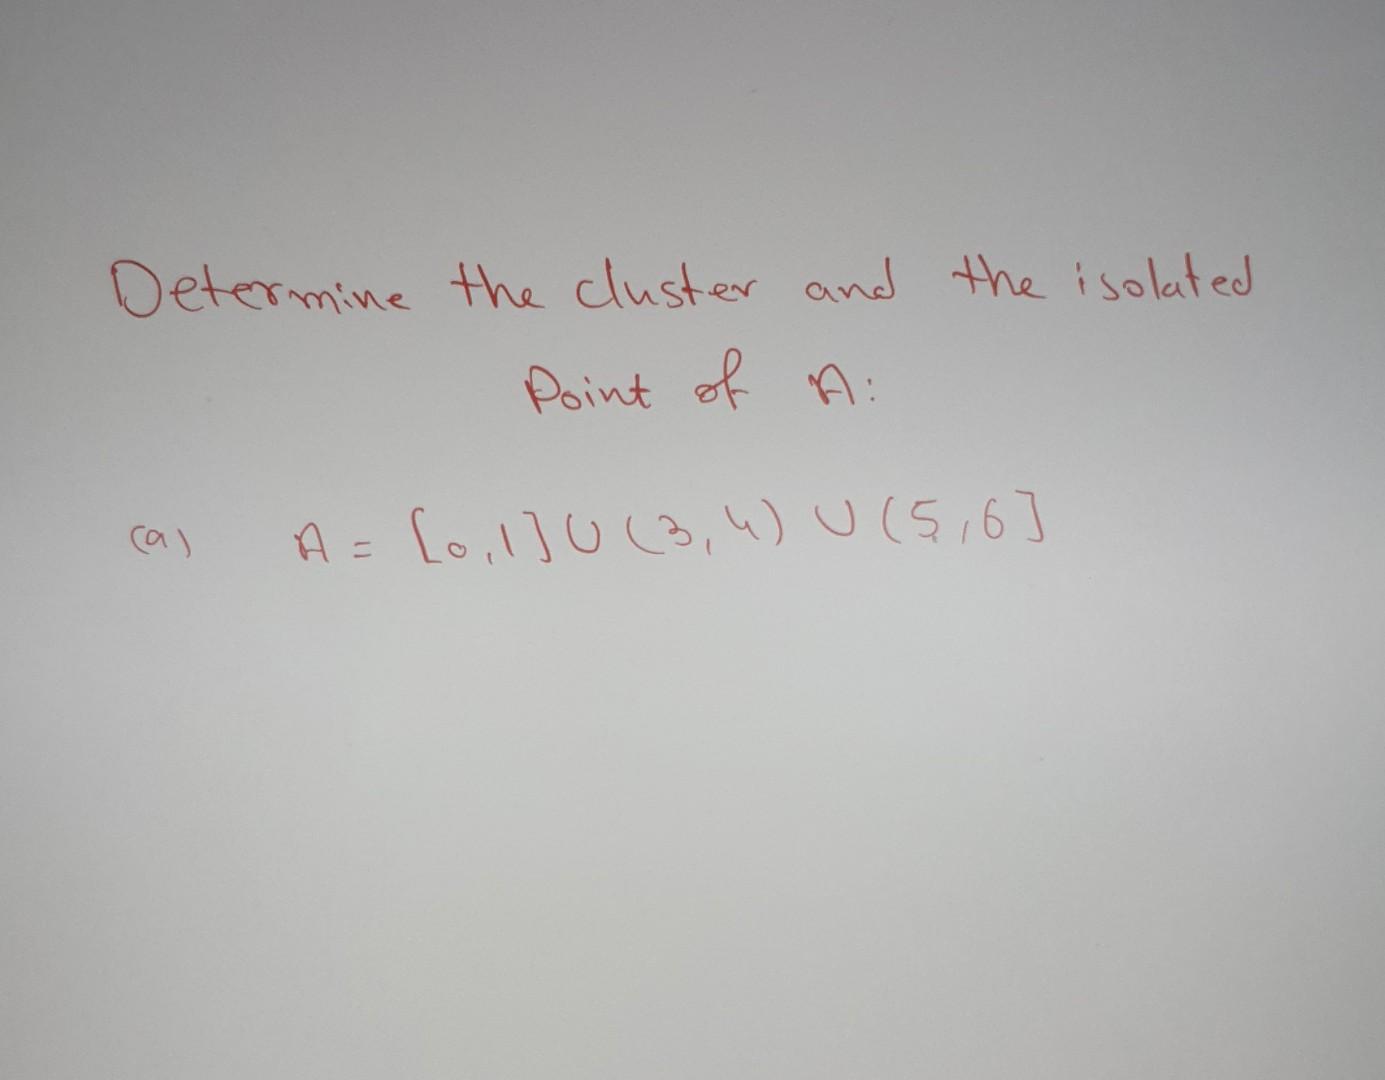 Determine the cluster and the isolated
Point of A:
(a) A = [0,1] ∪ (3,4) ∪ (5,6]